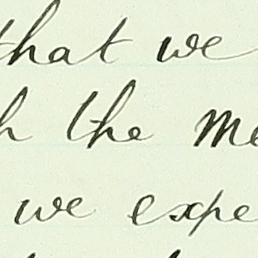 that we
h the me
we expe